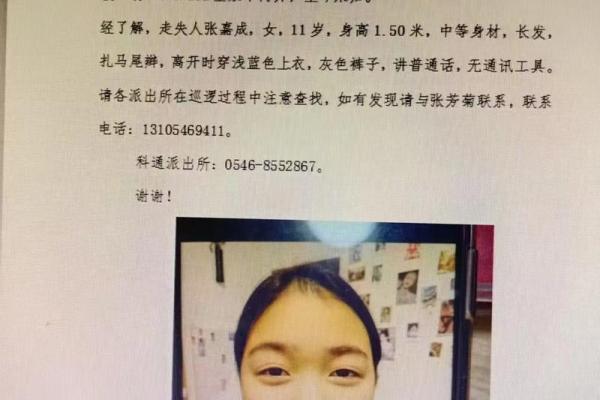 经了解，走失人张嘉成，女，11岁，身高1.50米，中等身材，长发，
扎马尾辫，离开时穿浅蓝色上衣，灰色裤子，讲普通话，无通讯工具。
请各派出所在巡逻过程中注意查找，如有发现请与张芳菊联系，联系
电话：13105469411。
科通派出所：0546-8552867。
谢谢！